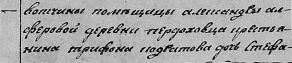 вотчины помещицы александры ал
феровой деревни пердоховца крестья
нина трифона подкитова дочь Стефа